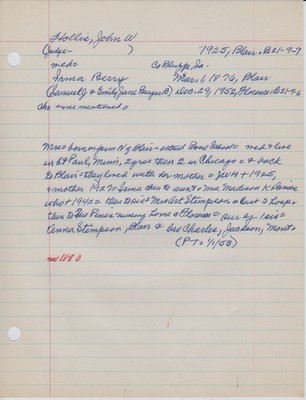 Hollis, John W
(Judge- ) 1925, Blair, B21-9-7
med= Co Bluffs, Ia.
Irma Berry Mar, 6 1876, Blair
(Samuel J & Emily Jane Burgess B) Dec. 29, 1952, Florence: B21-9-6
chr none mentioned =
Mrs = born on farm N of Blair = attend Rural School = med & live
in St Paul, Minn, 2 yrs = then 2 in Chicago = & back
to Blair = they lived with her mother = Jno H + 1925,
& mother 1927 = Irma then to aunt = Mrs Madison K
who + 1942 = then to sis = Mrs Art Stimpson = last to Hosp &
then to the Pines nursing home @ Florence = sur by 1 sis =
Anna Stimpson, Blair & bro Charles, Jackson, Mont =
(P-T= 1/1/53)
no 188 0